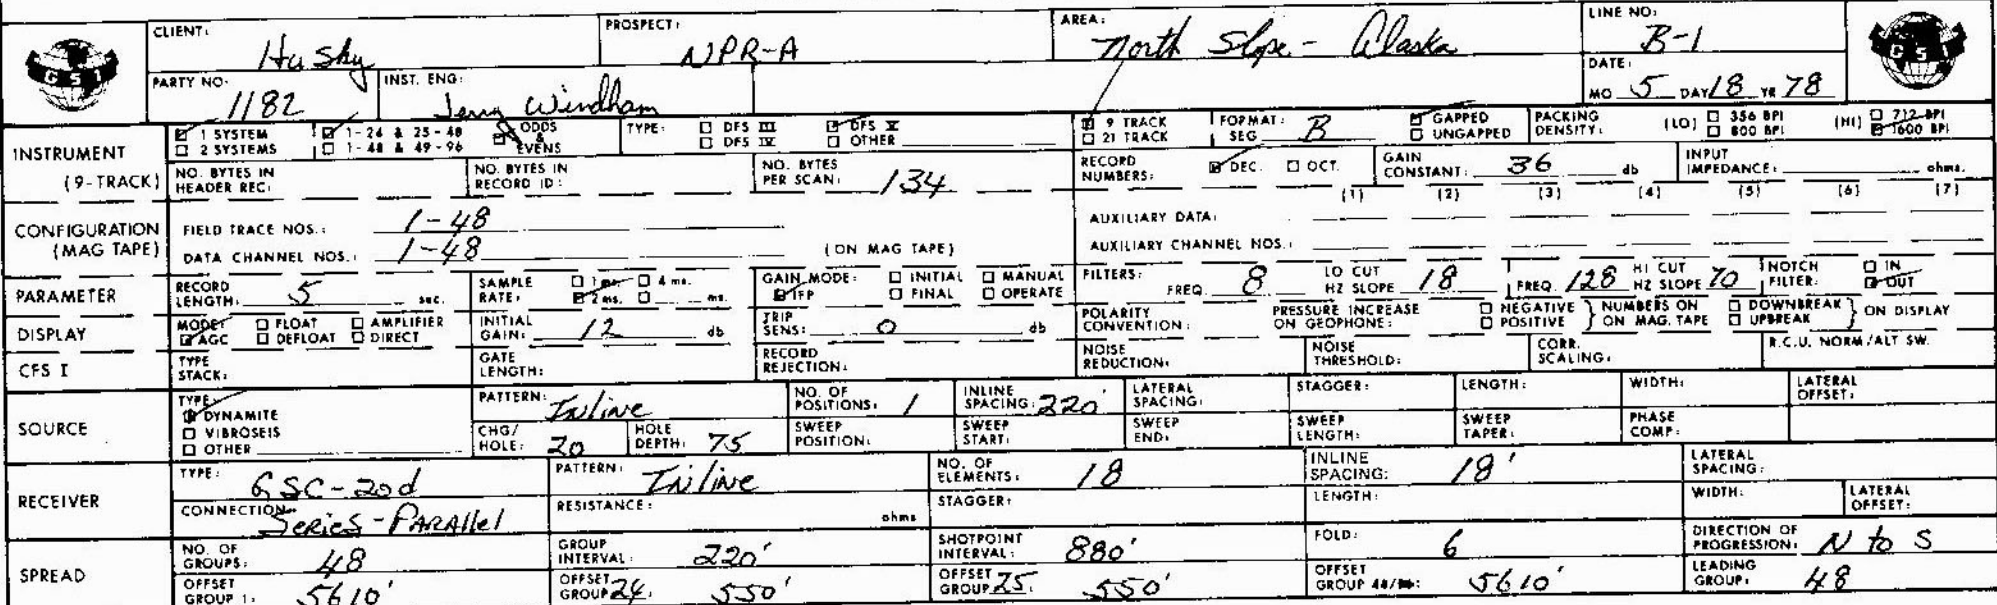 CLIENT: Husky PROSPECT: NPR-A AREA: North Slope - Alaska LINE NO: B-1
GSI GSI
PARTY NO. 1182 INST. ENG: Jerry Windham DATE: MO 5 DAY 18 YR 78
INSTRUMENT (9-TRACK)
1 SYSTEM 1-24 & 25-48 ODDS & EVENS TYPE: DFS III DFS V 9 TRACK FORMAT: SEG B GAPPED PACKING DENSITY: (LO) 356 BPI (HI) 712 BPI
2 SYSTEMS 1-48 & 49-96 DFS IV OTHER 21 TRACK UNGAPPED 800 BPI 1600 BPI
NO. BYTES IN HEADER REC: NO. BYTES IN RECORD ID: NO. BYTES PER SCAN: 134 RECORD NUMBERS: DEC. OCT. GAIN CONSTANT: 36 db INPUT IMPEDANCE: ohms.
(1) (2) (3) (4) (5) (6) (7)
CONFIGURATION (MAG TAPE)
FIELD TRACE NOS.: 1-48 AUXILIARY DATA:
DATA CHANNEL NOS.: 1-48 (ON MAG TAPE) AUXILIARY CHANNEL NOS.:
PARAMETER RECORD LENGTH: 5 sec. SAMPLE RATE: 1 ms. 4 ms. 2 ms. ms. GAIN MODE: INITIAL MANUAL IFP FINAL OPERATE FILTERS: FREQ. 8 LO CUT HZ SLOPE 18 FREQ. 128 HI CUT HZ SLOPE 70 NOTCH FILTER: IN OUT
DISPLAY MODE: FLOAT AMPLIFIER AGC DEFLOAT DIRECT INITIAL GAIN: 12 db TRIP SENS: 0 db POLARITY CONVENTION: PRESSURE INCREASE ON GEOPHONE: NEGATIVE POSITIVE } NUMBERS ON MAG. TAPE DOWNBREAK UPBREAK } ON DISPLAY
CFS I TYPE STACK: GATE LENGTH: RECORD REJECTION: NOISE REDUCTION: NOISE THRESHOLD: CORR. SCALING: R.C.U. NORM/ALT SW.
SOURCE TYPE: DYNAMITE VIBROSEIS OTHER
PATTERN: Inline NO. OF POSITIONS: 1 INLINE SPACING: 220' LATERAL SPACING: STAGGER: LENGTH: WIDTH: LATERAL OFFSET:
CHG/HOLE: 20 HOLE DEPTH: 75 SWEEP POSITION: SWEEP START: SWEEP END: SWEEP LENGTH: SWEEP TAPER: PHASE COMP:
RECEIVER TYPE: GSC-20d PATTERN: Inline NO. OF ELEMENTS: 18 INLINE SPACING: 18' LATERAL SPACING:
CONNECTION: Series-Parallel RESISTANCE: ohms STAGGER: LENGTH: WIDTH: LATERAL OFFSET:
SPREAD NO. OF GROUPS: 48 GROUP INTERVAL: 220' SHOTPOINT INTERVAL: 880' FOLD: 6 DIRECTION OF PROGRESSION: N to S
OFFSET GROUP 1: 5610' OFFSET GROUP 24: 550' OFFSET GROUP 25: 550' OFFSET GROUP 48/: 5610' LEADING GROUP: 48